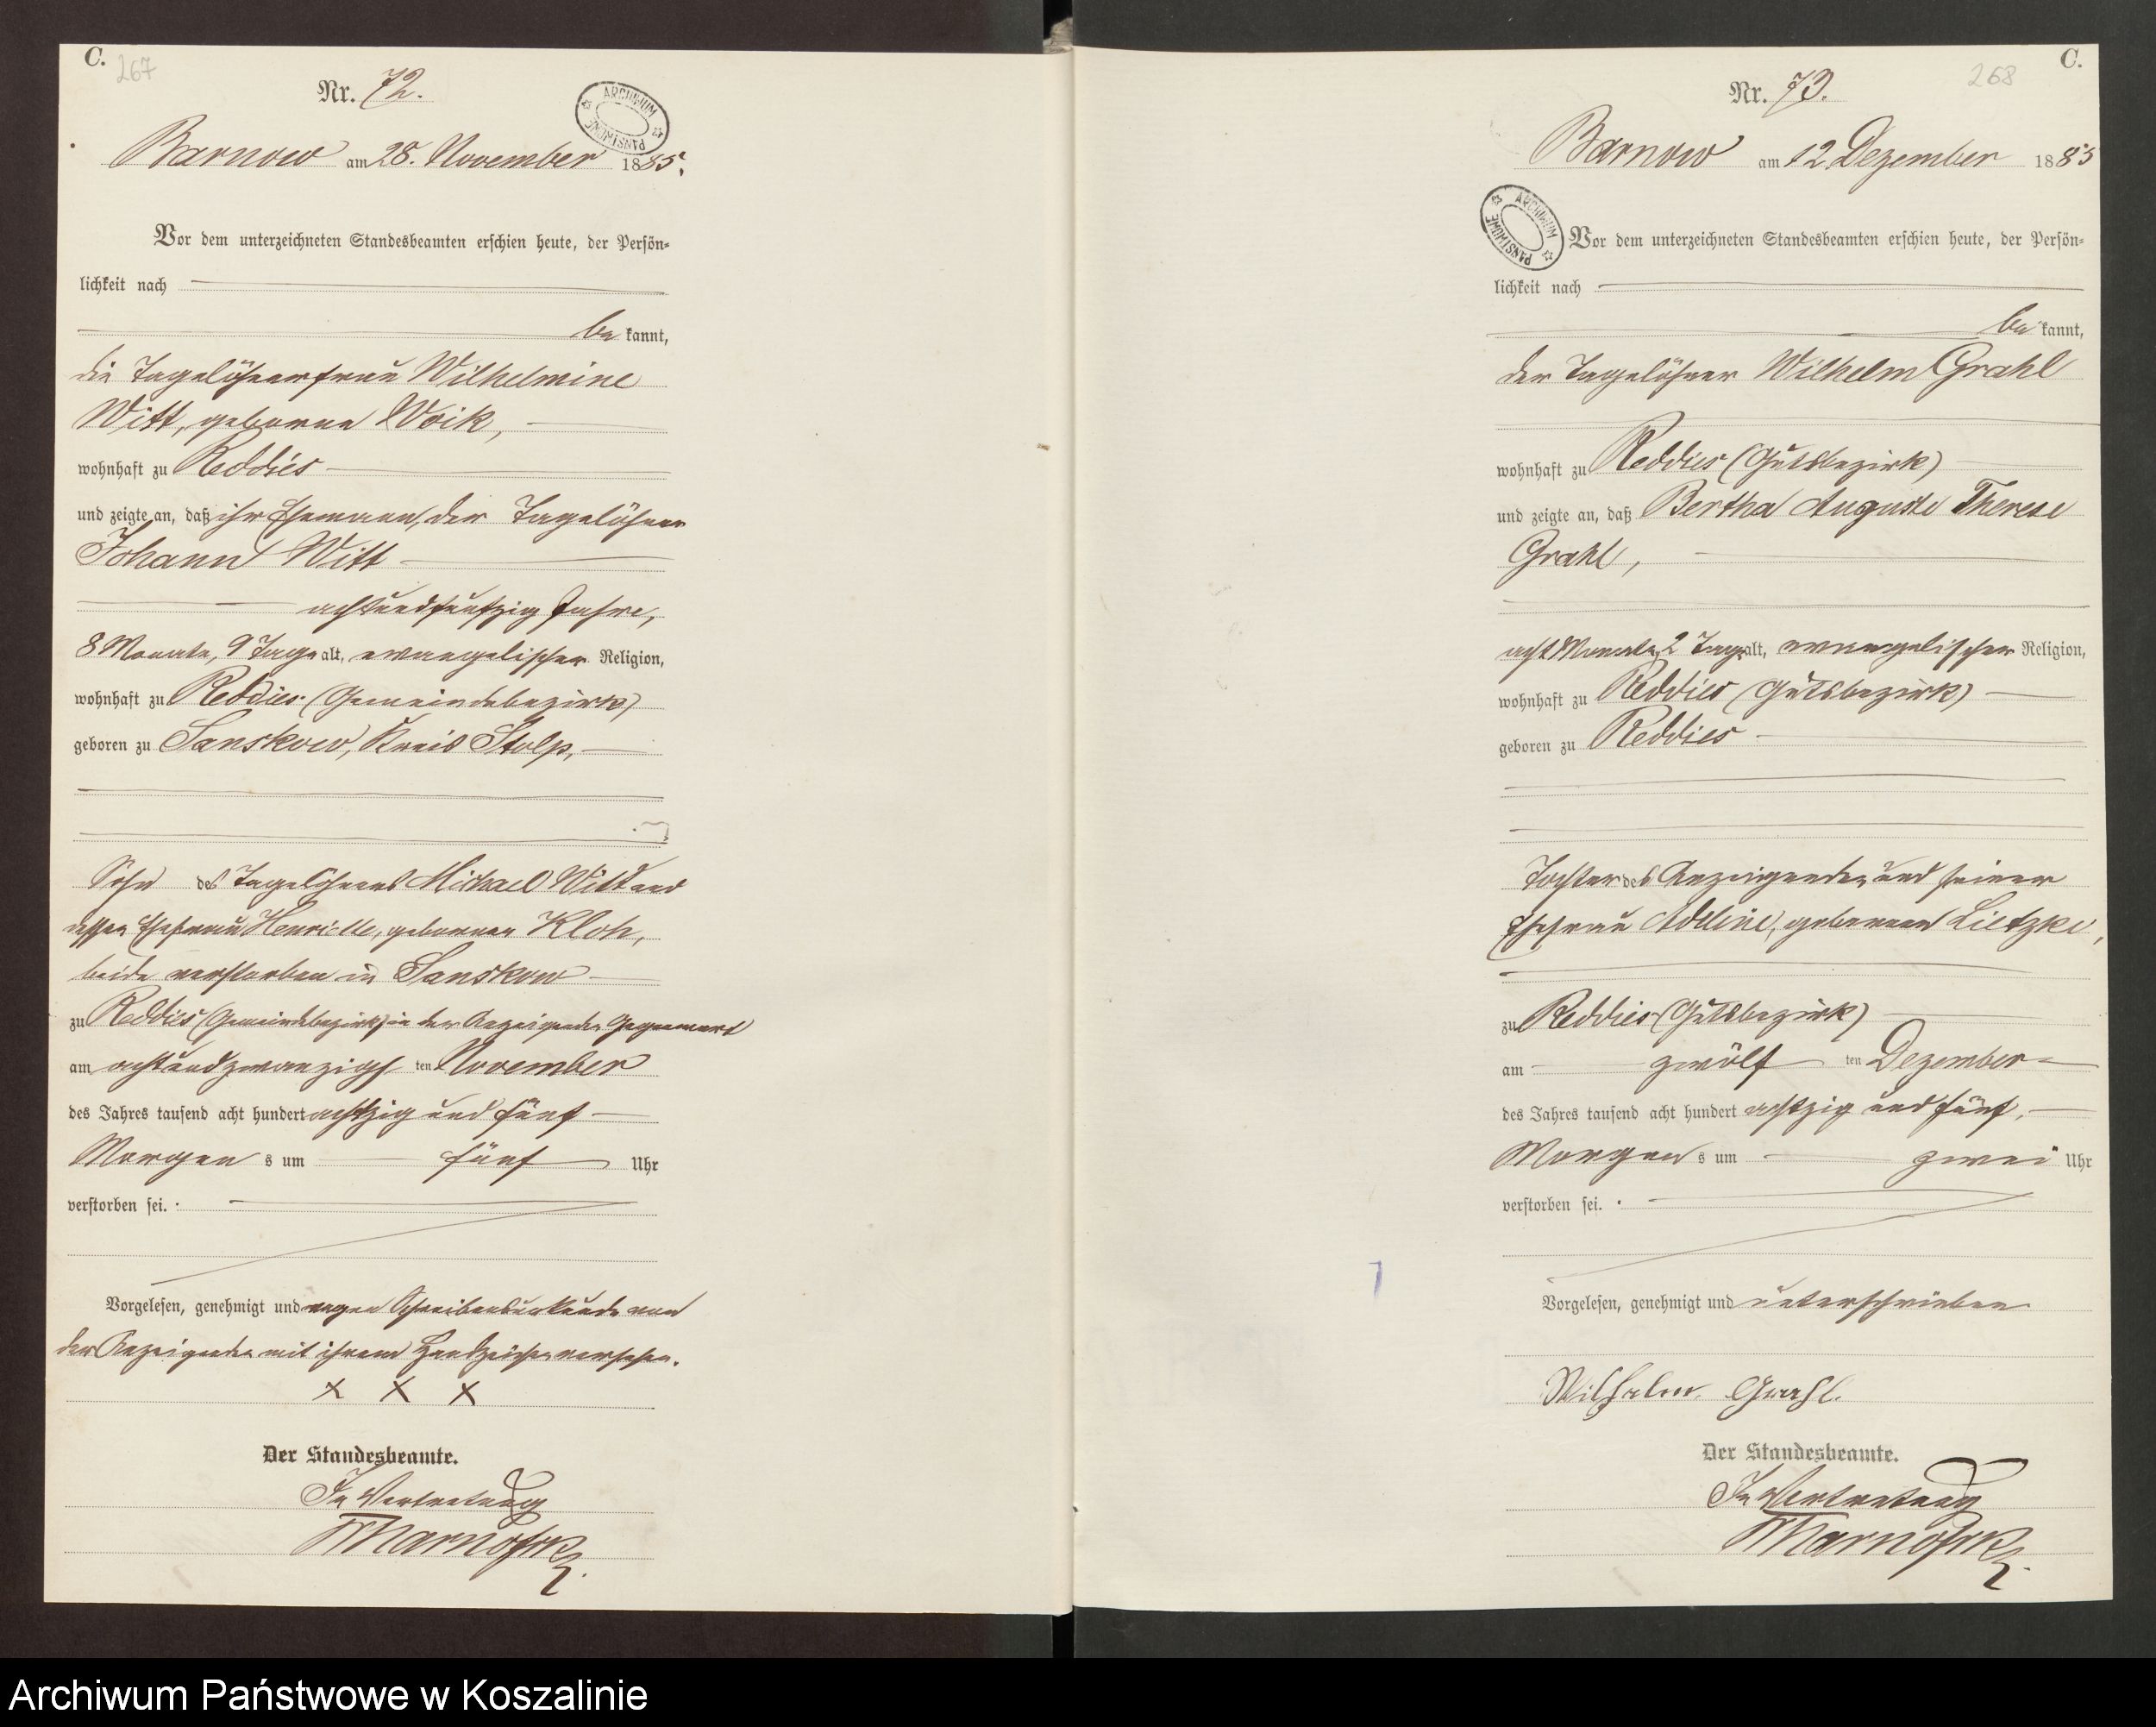 C.
267
Nr. 72.
ARCHIWUM PAŃSTWOWE
Barnow am 28. November 1885.
Vor dem unterzeichneten Standesbeamten erschien heute, der Persön-
lichkeit nach
be kannt,
die Tagelöhnerfrau Wilhelmine
Witt, geborne Woik,
wohnhaft zu Reddies
und zeigte an, daß ihr Ehemann, der Tagelöhner
Johann Witt
achtundfünfzig Jahre,
8 Monate, 9 Tage alt, evangelischer Religion,
wohnhaft zu Reddies (Gemeindebezirk)
geboren zu Sanskow, Kreis Stolp,
Sohn des Tagelöhners Michael Witt und
dessen Ehefrau Henriette, geborner Kloh,
beide verstorben in Sanskow
zu Reddies (Gemeindebezirk) in der Anzeigenden Gegenwart
am achtundzwanzigs ten November
des Jahres tausend acht hundert achtzig und fünf
Morgen s um fünf Uhr
verstorben sei.
Vorgelesen, genehmigt und wegen Schreibensunkunde von
der Anzeigenden mit ihrem Handzeichen versehen.
x x x
Der Standesbeamte.
In Vertretung
C.
268
Nr. 73.
Barnow am 12 Dezember 1885
ARCHIWUM PAŃSTWOWE
Vor dem unterzeichneten Standesbeamten erschien heute, der Persön-
lichkeit nach
be kannt,
der Tagelöhner Wilhelm Grahl
wohnhaft zu Reddies (Gutsbezirk)
und zeigte an, daß Bertha Auguste Therese
Grahl,
acht Monate, 2 Tage alt, evangelischer Religion,
wohnhaft zu Reddies (Gutsbezirk)
geboren zu Reddies
Tochter des Anzeigenden und seiner
Ehefrau Adeline, gebornen Lietzke,
zu Reddies (Gutsbezirk)
am zwölf ten Dezember
des Jahres tausend acht hundert achtzig und fünf,
Morgen s um zwei Uhr
verstorben sei.
Vorgelesen, genehmigt und unterschrieben
Wilhelm Grahl.
Der Standesbeamte.
In Vertretung
Archiwum Państwowe w Koszalinie